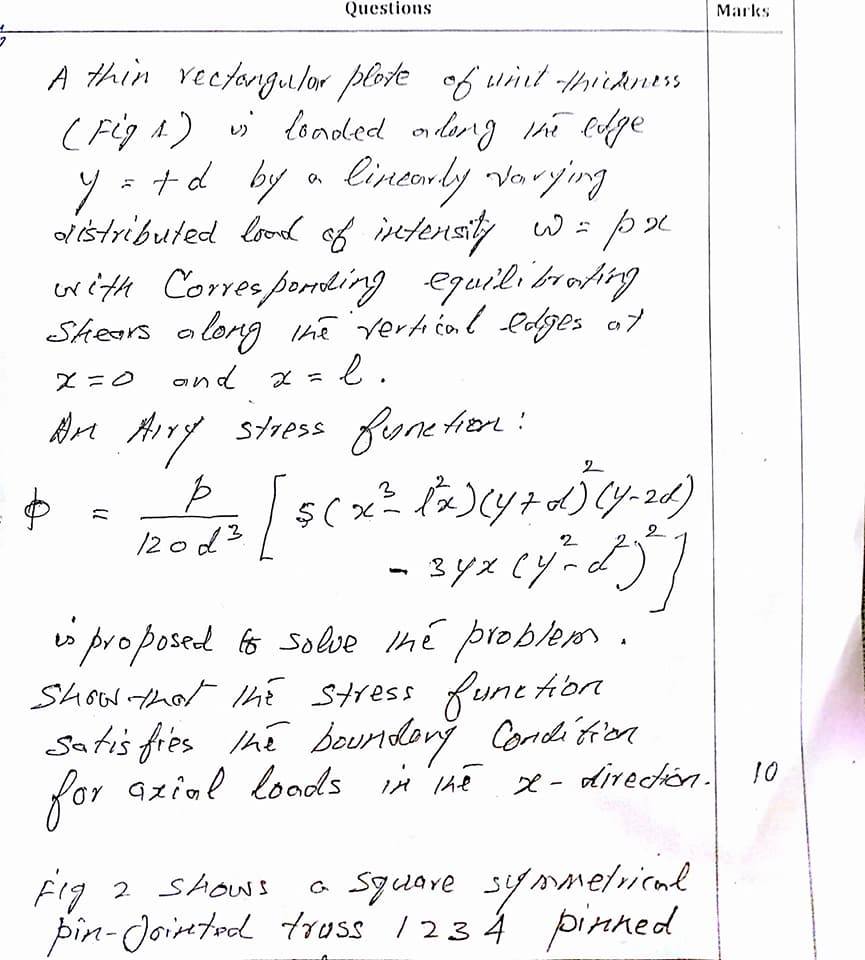 Questions
Marks
A thin rectangular plate of unit thickness
(Fig 1) is loaded along the edge
y = + d by a linearly varying
distributed load of intensity w = px
with Corresponding equilibrating
Shears along the vertical edges at
x = 0 and x = l.
An Airy stress function:
φ = p/120d³ [5(x³ - l²x)(y+d)²(y-2d)
- 3yx(y² - d²)²]
is proposed to solve the problem.
Show that the stress function
satisfies the boundary Condition
for axial loads in the x-direction.
10
Fig 2 shows a square symmetrical
pin-Jointed truss 1 2 3 4 pinned